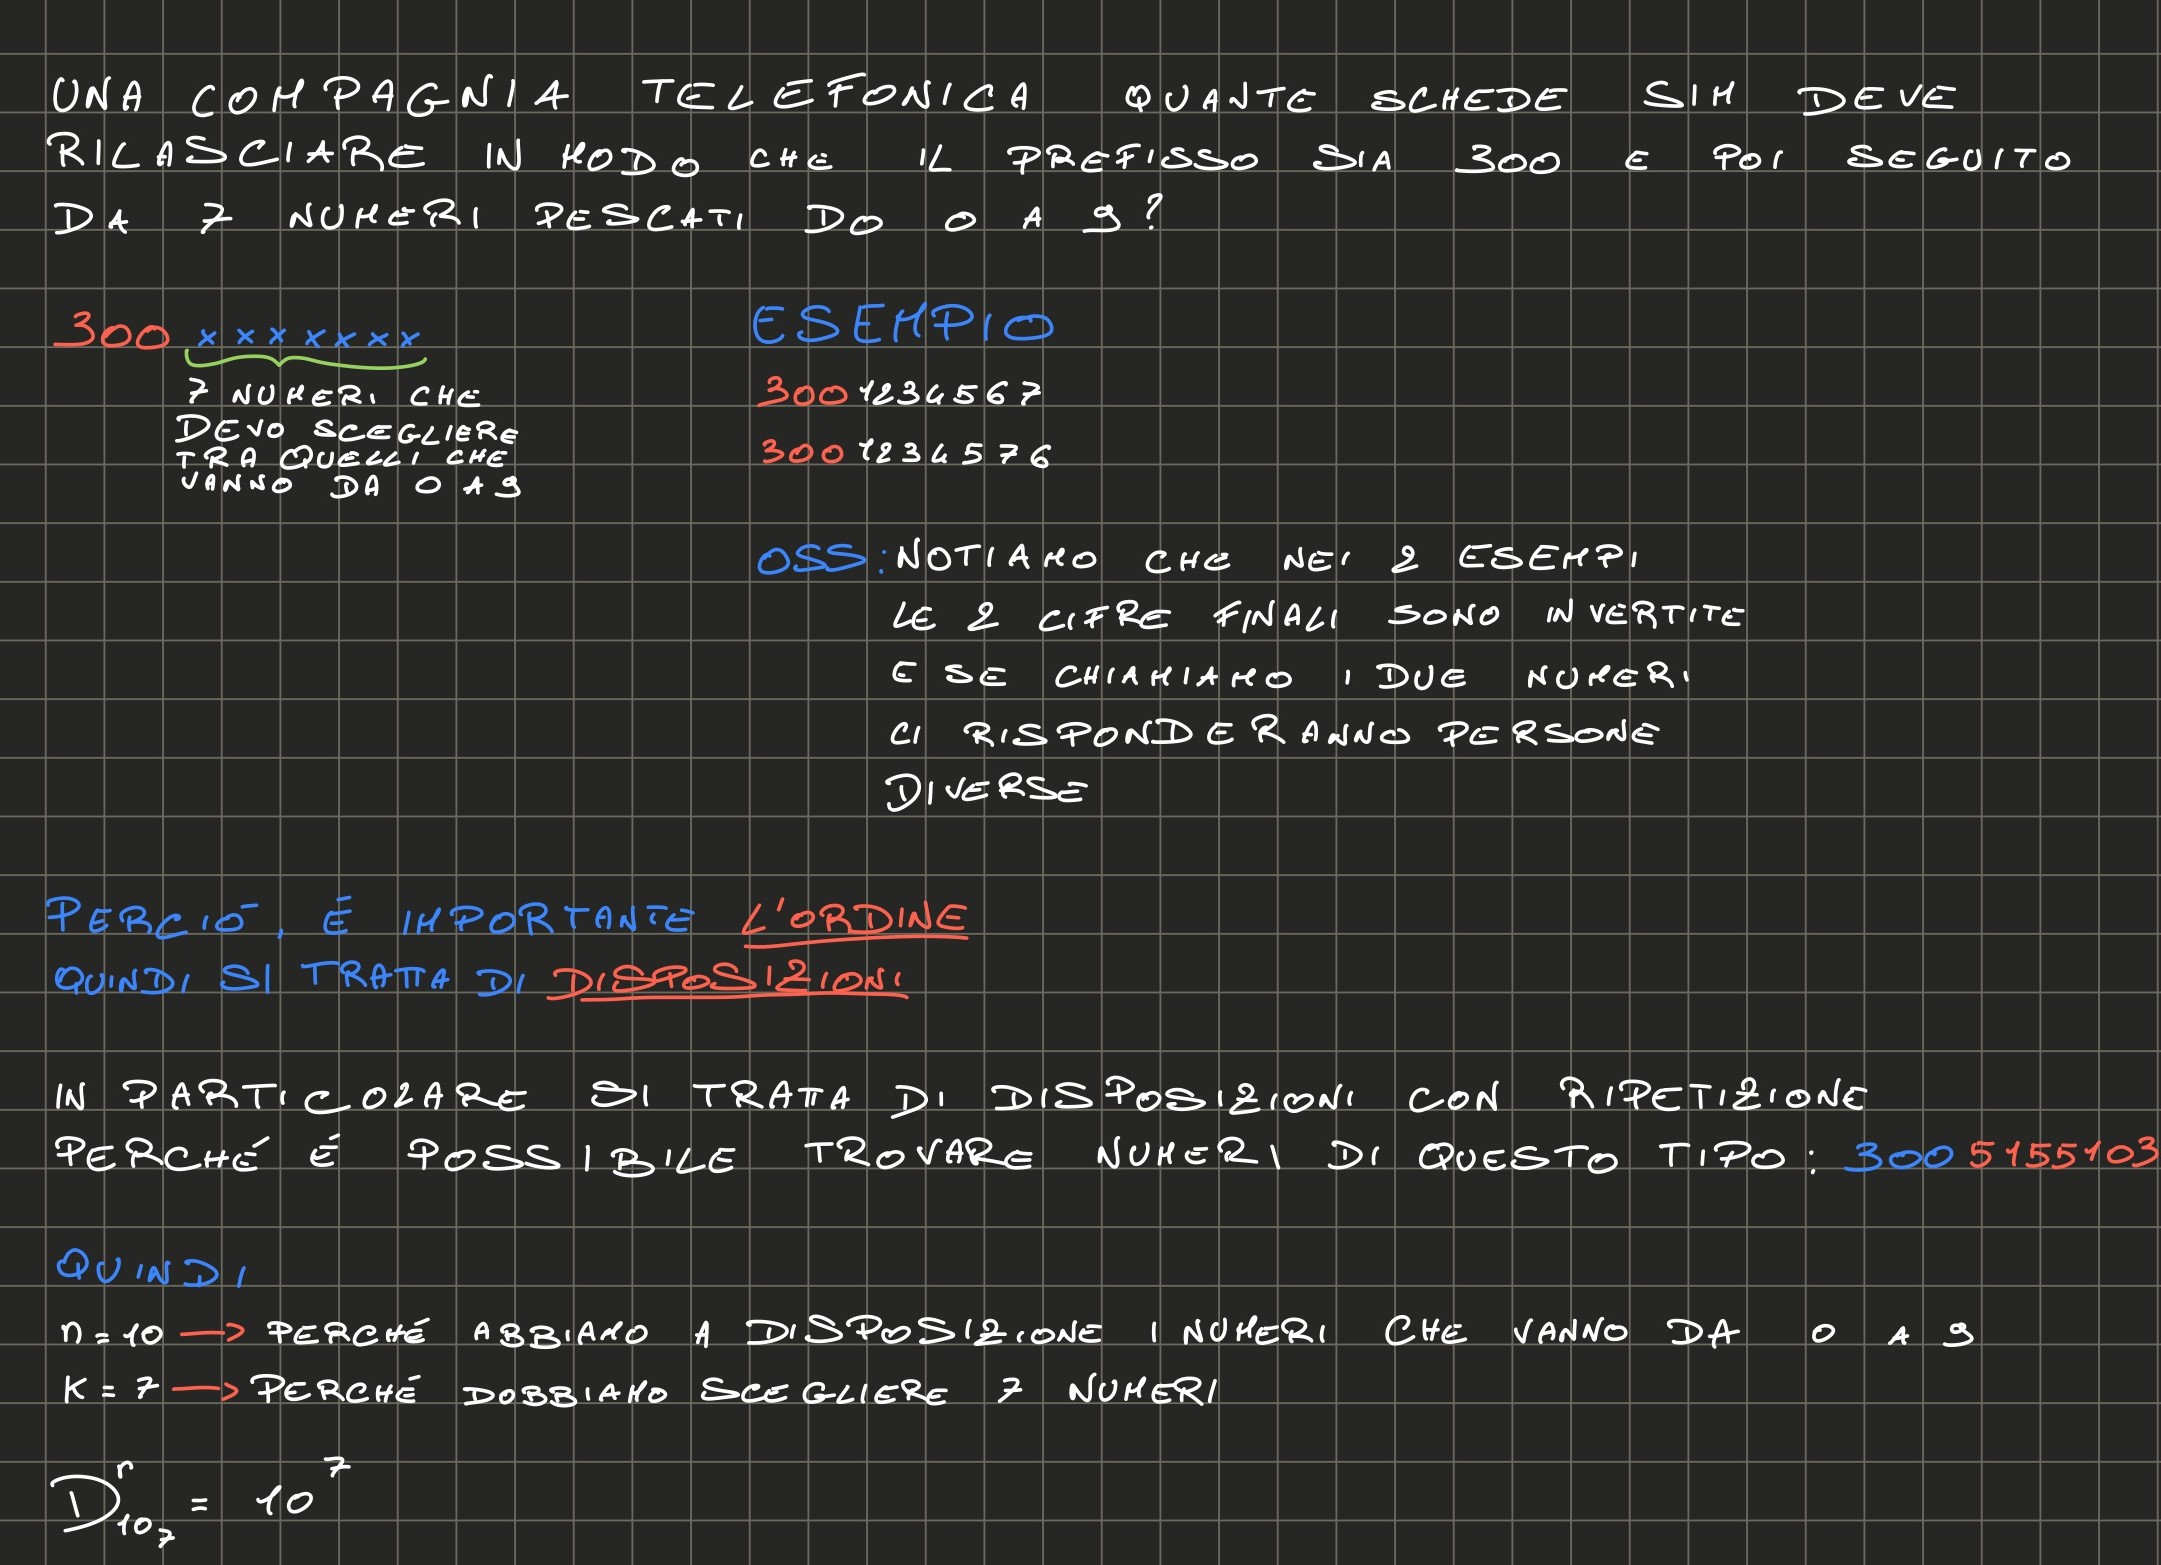 UNA COMPAGNIA TELEFONICA QUANTE SCHEDE SIM DEVE
RILASCIARE IN MODO CHE IL PREFISSO SIA 300 E POI SEGUITO
DA 7 NUMERI PESCATI DO 0 A 9?
300 x x x x x x x
7 NUMERI CHE
DEVO SCEGLIERE
TRA QUELLI CHE
VANNO DA 0 A 9
ESEMPIO
300 1234567
300 1234576
OSS: NOTIAMO CHE NEI 2 ESEMPI
LE 2 CIFRE FINALI SONO INVERTITE
E SE CHIAMIAMO I DUE NUMERI
CI RISPONDERANNO PERSONE
DIVERSE
PERCIÓ, É IMPORTANTE L'ORDINE
QUINDI SI TRATTA DI DISPOSIZIONI
IN PARTICOLARE SI TRATTA DI DISPOSIZIONI CON RIPETIZIONE
PERCHÉ É POSSIBILE TROVARE NUMERI DI QUESTO TIPO: 300 5155103
QUINDI
n = 10 → PERCHÉ ABBIAMO A DISPOSIZIONE I NUMERI CHE VANNO DA 0 A 9
K = 7 → PERCHÉ DOBBIAMO SCEGLIERE 7 NUMERI
D^r_{10_7} = 10^7